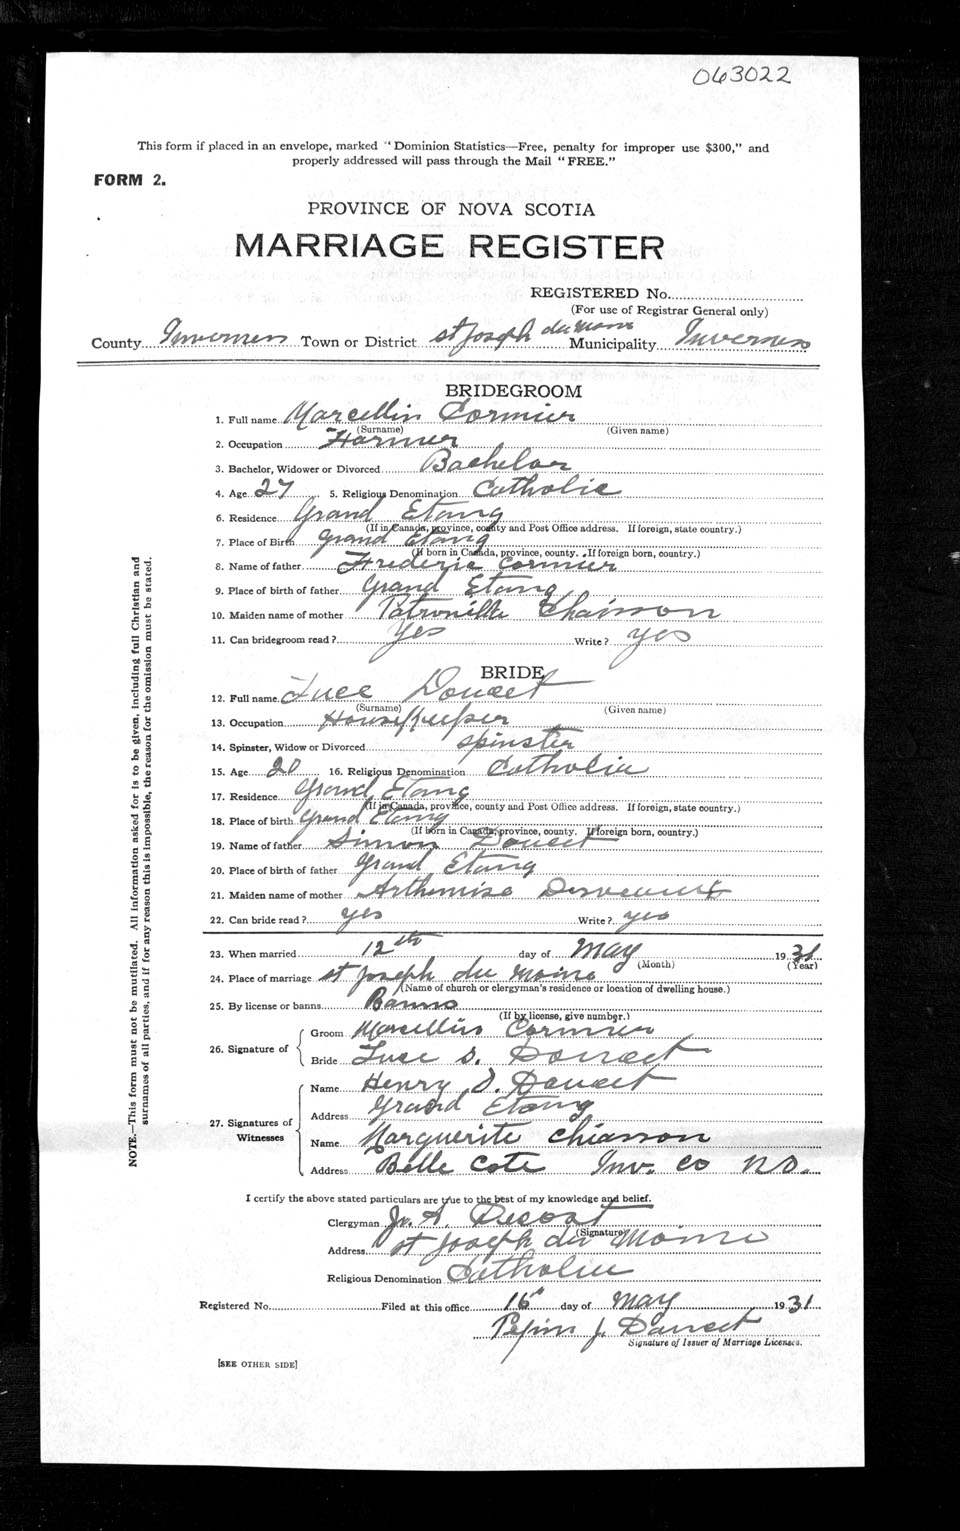 063022
This form if placed in an envelope, marked "Dominion Statistics—Free, penalty for improper use $300," and
properly addressed will pass through the Mail "FREE."
FORM 2.
PROVINCE OF NOVA SCOTIA
MARRIAGE REGISTER
REGISTERED No.
(For use of Registrar General only)
County Inverness Town or District St Joseph du Moine Municipality Inverness
BRIDEGROOM
1. Full name Marcellin Cormier
(Surname) (Given name)
2. Occupation Farmer
3. Bachelor, Widower or Divorced Bachelor
4. Age 27 5. Religious Denomination Catholic
6. Residence Grand Etang
(If in Canada, province, county and Post Office address. If foreign, state country.)
7. Place of Birth Grand Etang
(If born in Canada, province, county. If foreign born, country.)
8. Name of father Frederic Cormier
9. Place of birth of father Grand Etang
10. Maiden name of mother Chiasson
11. Can bridegroom read? Yes Write? yes
BRIDE
12. Full name Luce Doucet
(Surname) (Given name)
13. Occupation Housekeeper
14. Spinster, Widow or Divorced spinster
15. Age 20 16. Religious Denomination Catholic
17. Residence Grand Etang
(If in Canada, province, county and Post Office address. If foreign, state country.)
18. Place of birth Grand Etang
(If born in Canada, province, county. If foreign born, country.)
19. Name of father Simon Doucet
20. Place of birth of father Grand Etang
21. Maiden name of mother Arthemise
22. Can bride read? yes Write? yes
23. When married 12th day of May 1931
(Month) (Year)
24. Place of marriage St Joseph du Moine
(Name of church or clergyman's residence or location of dwelling house.)
25. By license or banns Banns
(If by license, give number.)
26. Signature of
Groom Marcellin Cormier
Bride Luce S. Doucet
27. Signatures of Witnesses
Name Henry D. Doucet
Address Grand Etang
Name Marguerite Chiasson
Address Belle Cote Inv. Co N.S.
I certify the above stated particulars are true to the best of my knowledge and belief.
Clergyman A. DeCoste
(Signature)
Address St Joseph du Moine
Religious Denomination Catholic
Registered No. Filed at this office 16 day of May 1931
J. Doucet
Signature of Issuer of Marriage Licenses.
[SEE OTHER SIDE]
NOTE.—This form must not be mutilated. All information asked for is to be given, including full Christian and
surnames of all parties, and if for any reason this is impossible, the reason for the omission must be stated.